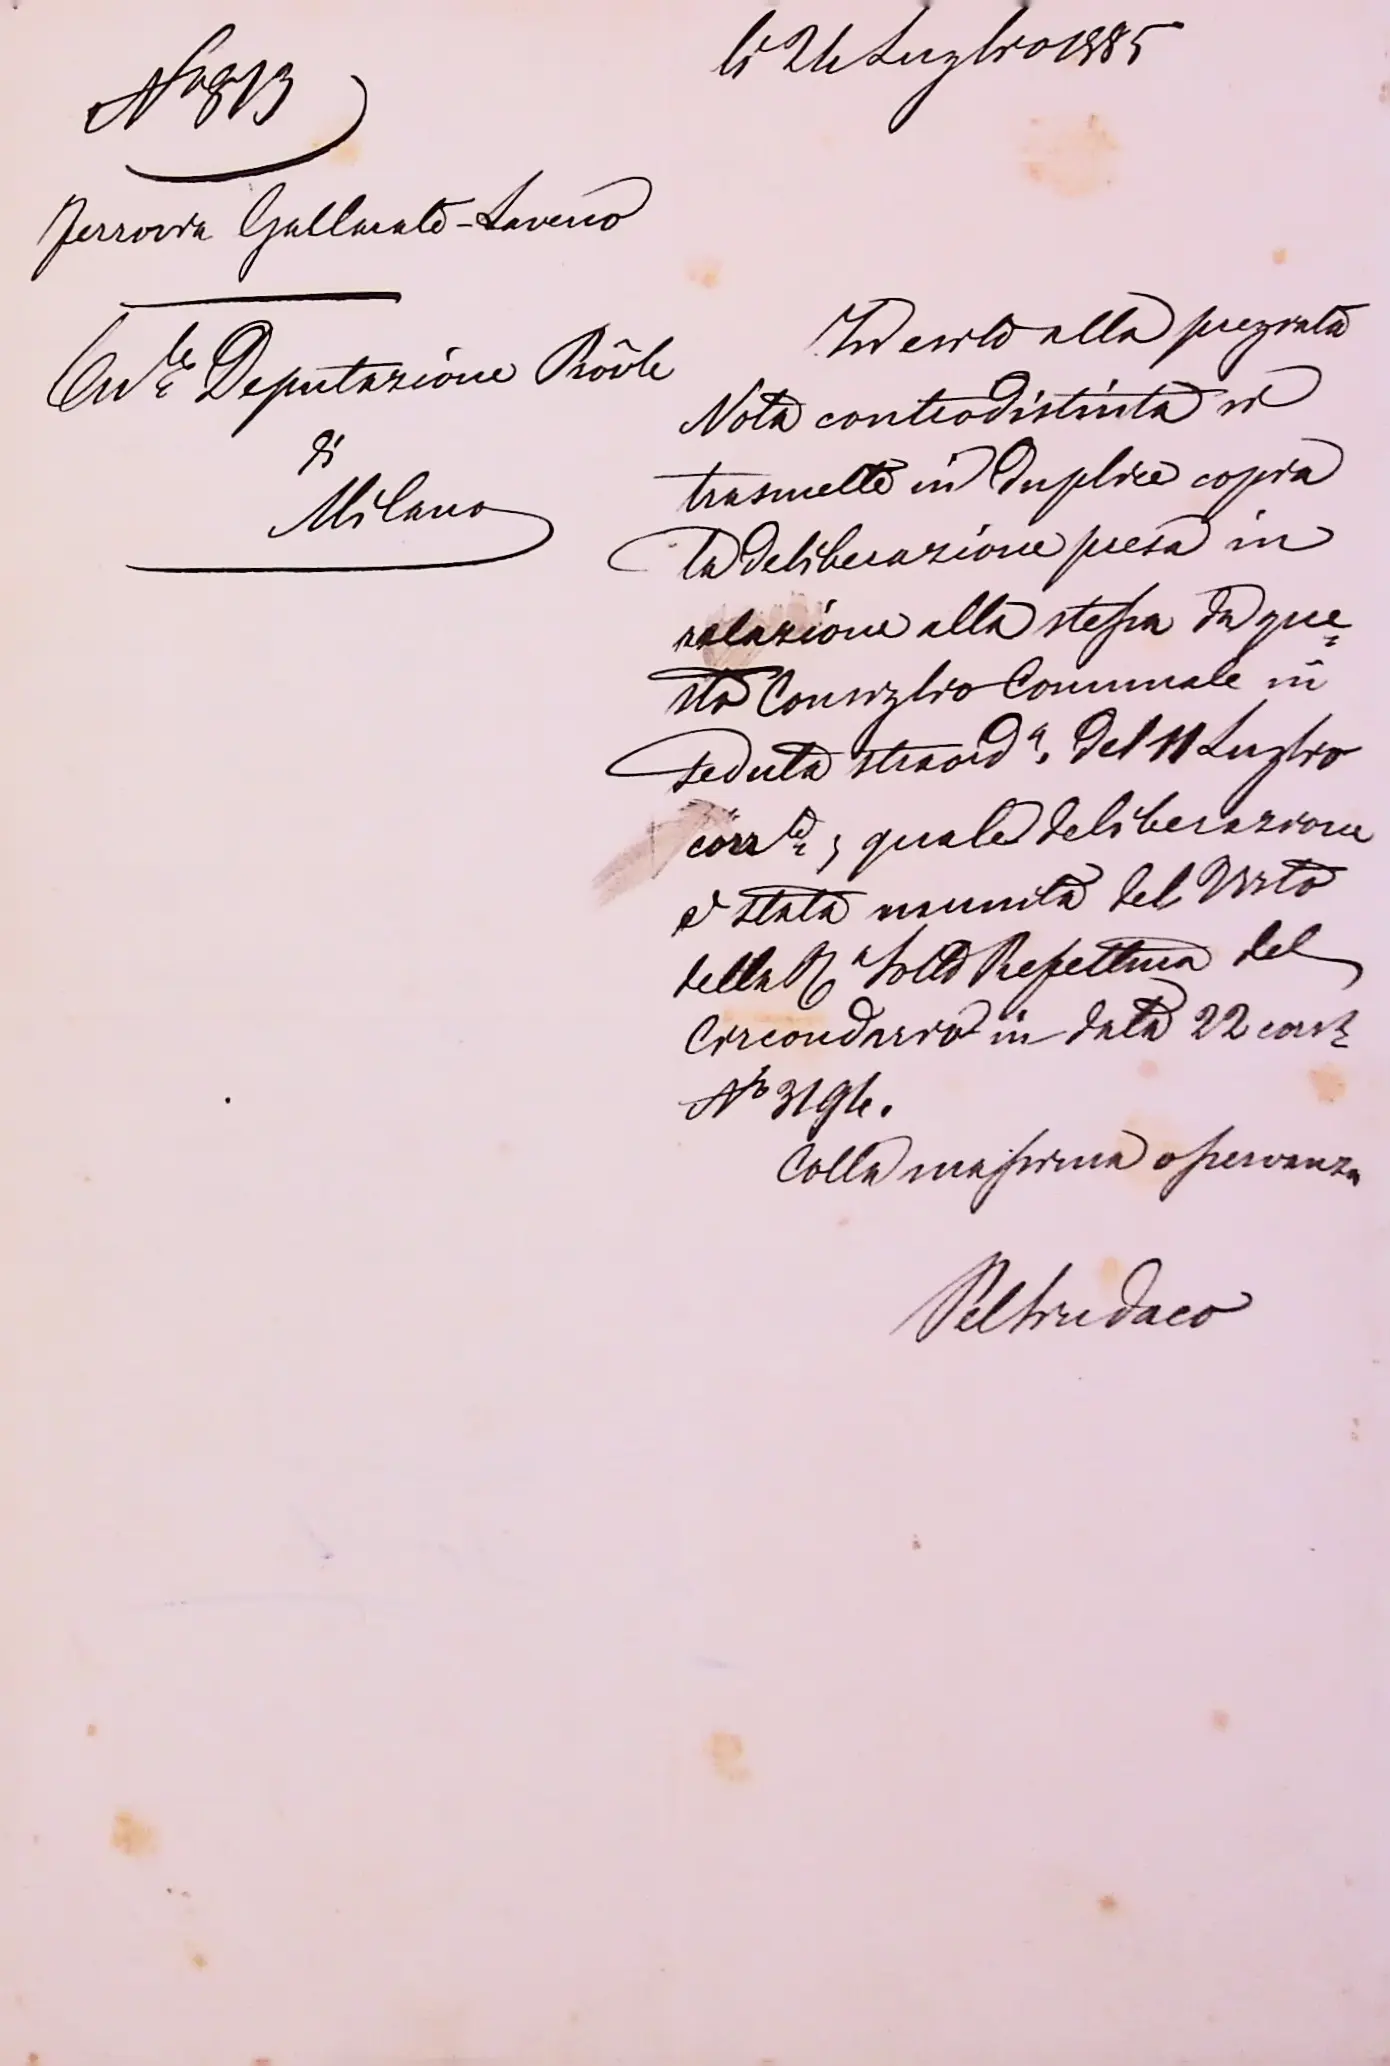 li 24 Luglio 1885
N.o 813
Ferrovia Gallarate-Laveno
On.le Deputazione Prov.le
di
Milano
In esito alla pregiata
Nota controdistinta si
trasmette in duplice copia
la deliberazione presa in
relazione alla stessa da que=
sto Consiglio Comunale in
seduta straord.a del 11 Luglio
corr.te, quale deliberazione
è stata munita del Visto
della R.a Sotto Prefettura del
Circondario in data 22 corr.e
N.o 3194.
Colla massima osservanza
Pel Sindaco